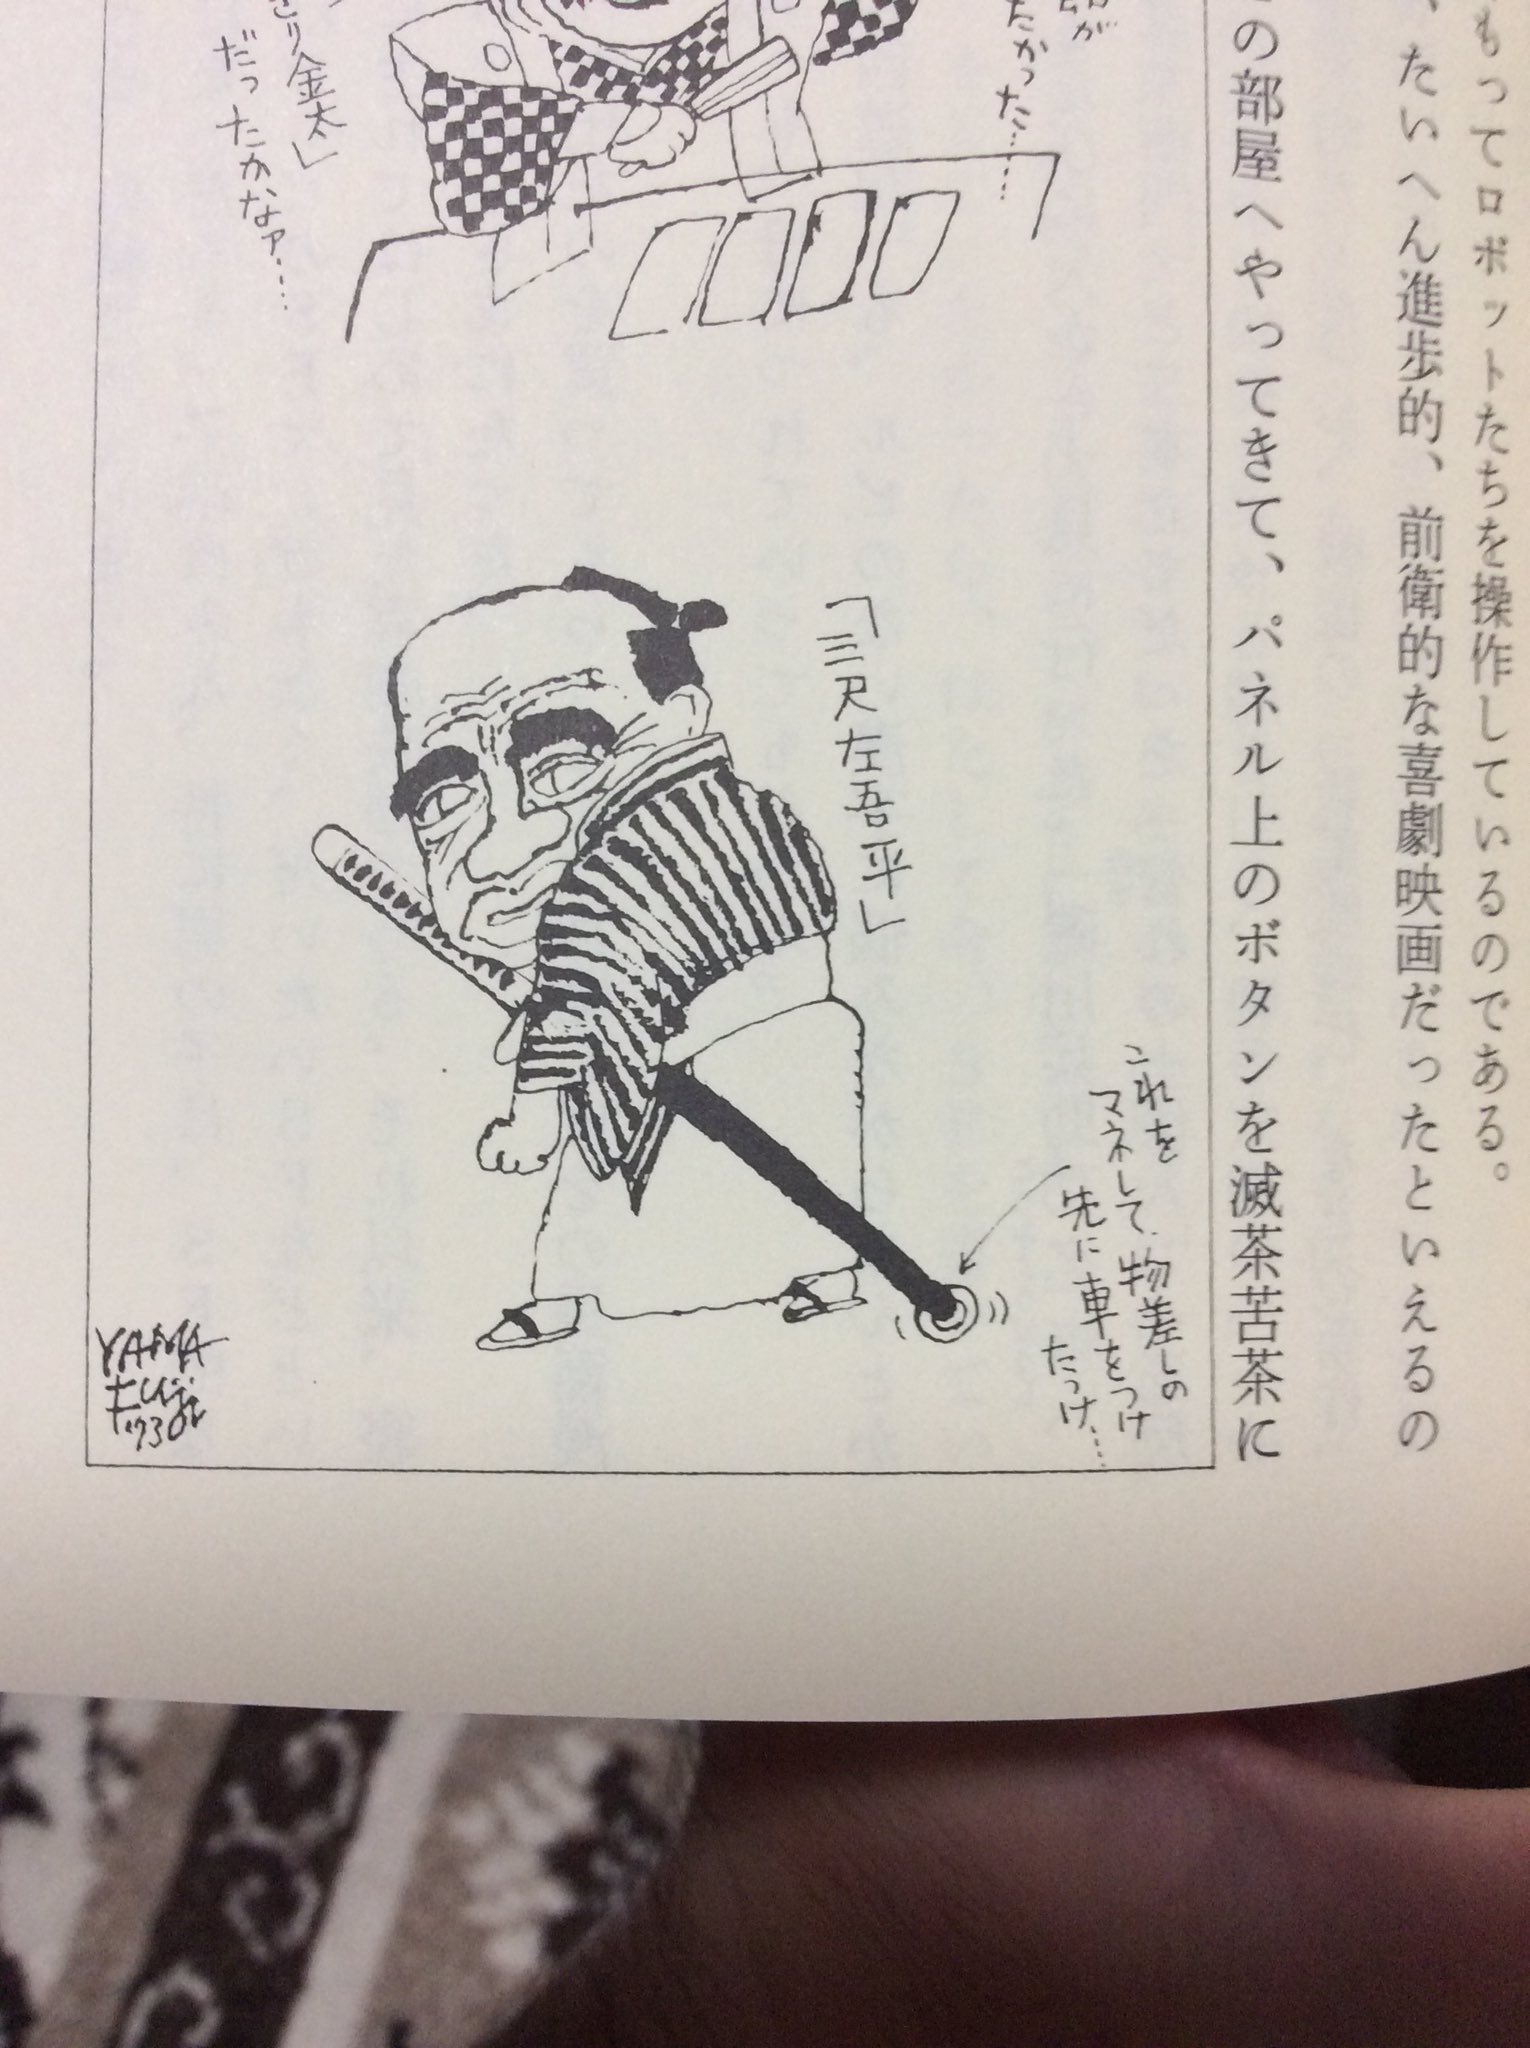 もってロボットたちを操作しているのである。
、たいへん進歩的、前衛的な喜劇映画だったといえるの
の部屋へやってきて、パネル上のボタンを滅茶苦茶に
が
たかった……
こり金太」
だったかなァ……
「三尺左吾平」
これを
マネして、物差しの
先に車をつけ
たっけ…
YAMA
FUji
'73